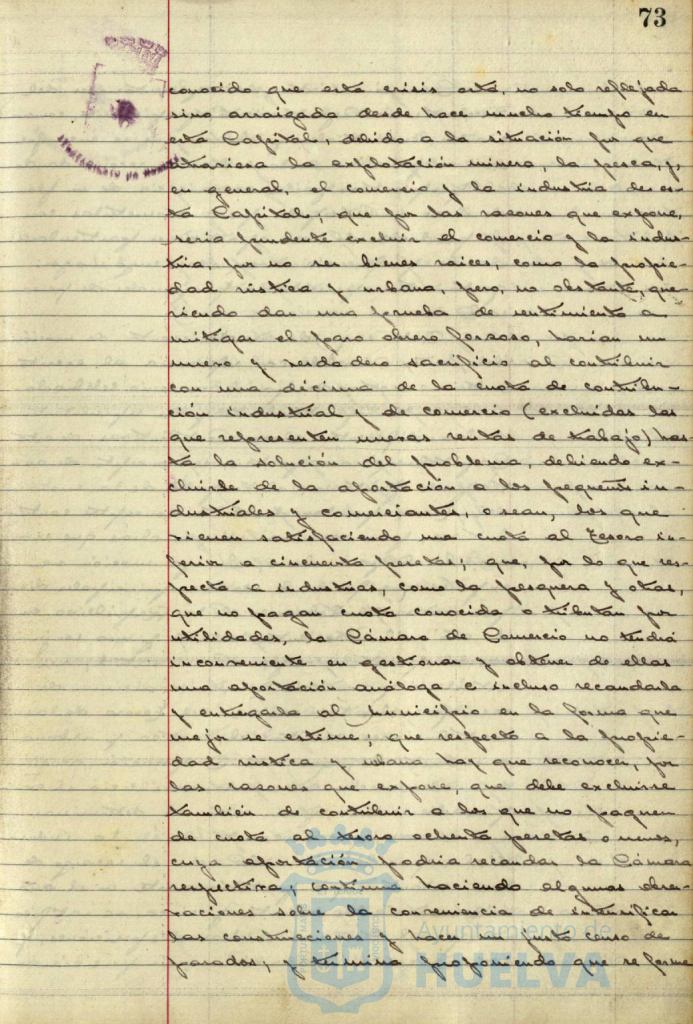 73
AYUNTAMIENTO DE HUELVA
conocido que esta crisis está, no solo reflejada
sino arraigada desde hace mucho tiempo en
esta Capital, debido a la situación por que
atraviesa la explotación minera, la pesca, y,
en general, el comercio y la industria de es-
ta Capital; que por las razones que expone,
sería prudente excluir el comercio y la indus-
tria, por no ser bienes raices, como la propie-
dad rústica y urbana, pero, no obstante, que-
riendo dar una prueba de sentimiento a
mitigar el paro obrero forzoso, harían un
nuevo y verdadero sacrificio al contribuir
con una décima de la cuota de contribu-
ción industrial y de comercio (excluidas las
que representen nuevas rentas de trabajo) has-
ta la solución del problema, debiendo ex-
cluirse de la aportación a los pequeños in-
dustriales y comerciantes, o sean, los que
vienen satisfaciendo una cuota al Tesoro in-
ferior a cincuenta pesetas; que, por lo que res-
pecta a industrias, como la pesquera y otras,
que no pagan cuota conocida o tributan por
utilidades, la Cámara de Comercio no tendrá
inconveniente en gestionar y obtener de ellas
una aportación análoga e incluso recaudarla
y entregarla al Municipio en la forma que
mejor se estime; que respecto a la propie-
dad rústica y urbana hay que reconocer, por
las razones que expone, que debe excluirse
también de contribuir a los que no paguen
de cuota al tesoro ochenta pesetas o menos,
cuya aportación podría recaudar la Cámara
respectiva; continua haciendo algunas obser-
vaciones sobre la conveniencia de intensificar
las construcciones y hacer un justo censo de
parados; y termina proponiendo que se forme
Ayuntamiento de
HUELVA